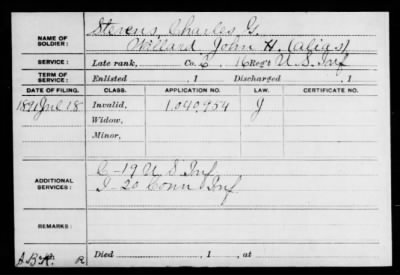 NAME OF SOLDIER: Stevens, Charles G.
Willard, John H. (alias)
SERVICE: Late rank, Co. C, 16 Reg't U.S. Inf
TERM OF SERVICE: Enlisted , 1 Discharged , 1
DATE OF FILING. CLASS. APPLICATION NO. LAW. CERTIFICATE NO.
1891 Jul 18 Invalid, 1.040.954 J
Widow,
Minor,
ADDITIONAL SERVICES: C-19 U S Inf
I-20 Conn Inf
REMARKS:
Died , 1 , at